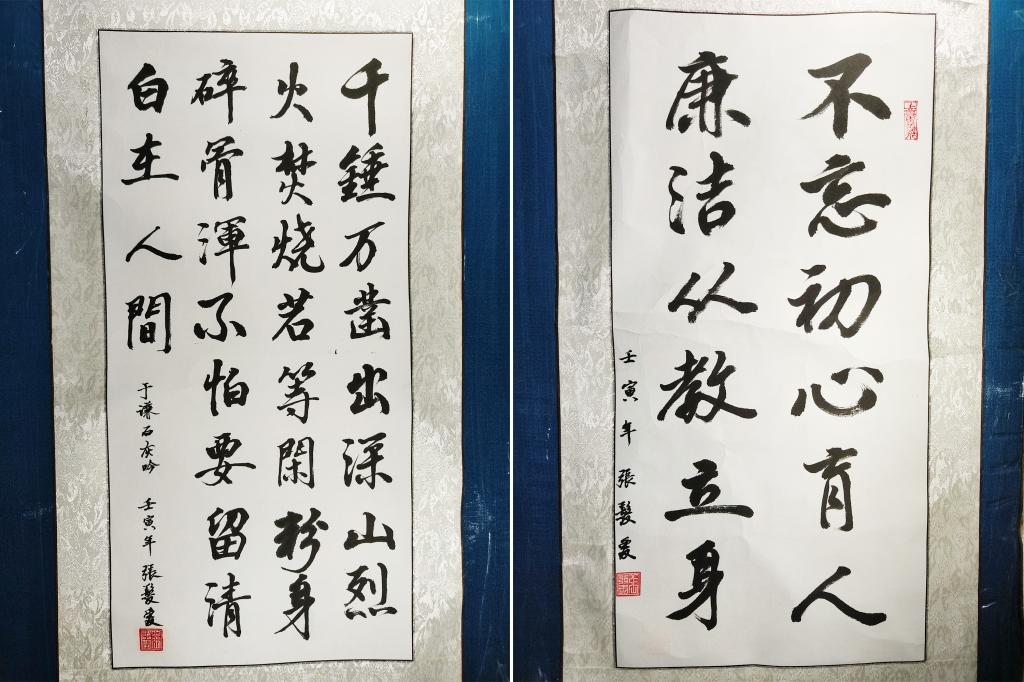 千錘万凿出深山烈
火焚烧若等閑粉身
碎骨渾不怕要留清
白在人間
于謙石灰吟 壬寅年 張髮爱
不忘初心育人
廉洁从教立身
壬寅年 張髮爱